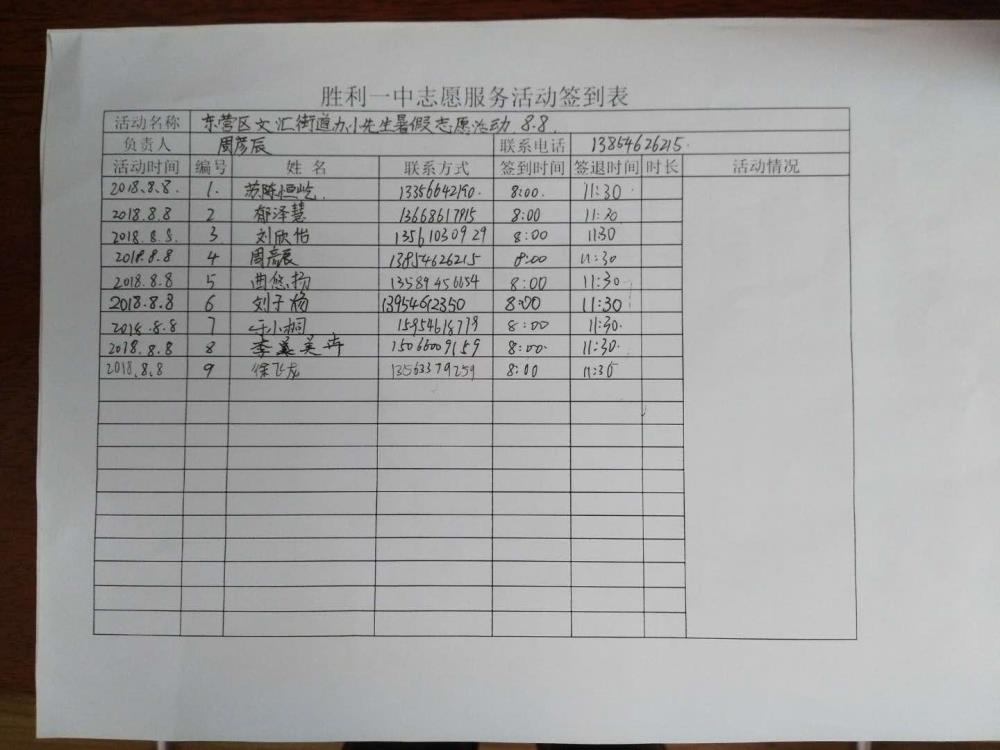 胜利一中志愿服务活动签到表
活动名称 东营区文汇街道办小先生暑假志愿活动 8.8.
负责人 周彦辰 联系电话 13854626215.
活动时间 编号 姓名 联系方式 签到时间 签退时间 时长 活动情况
2018.8.8. 1. 苏陈恒屹. 13356642190. 8:00. 11:30
2018.8.8 2 郁泽慧 13668617915 8:00 11:30
2018.8.8. 3 刘欣怡 13561030929 8:00 11:30
2018.8.8 4 周彦辰 13854626215 8:00 11:30
2018.8.8 5 曲悠扬 13589456654 8:00 11:30
2018.8.8 6 刘子杨 13954612350 8:00 11:30
2018.8.8 7 于小桐 8:00 11:30.
2018.8.8 8 李 英卉 15066009159 8:00. 11:30.
2018.8.8 9 徐飞龙 13563379259 8:00 11:30